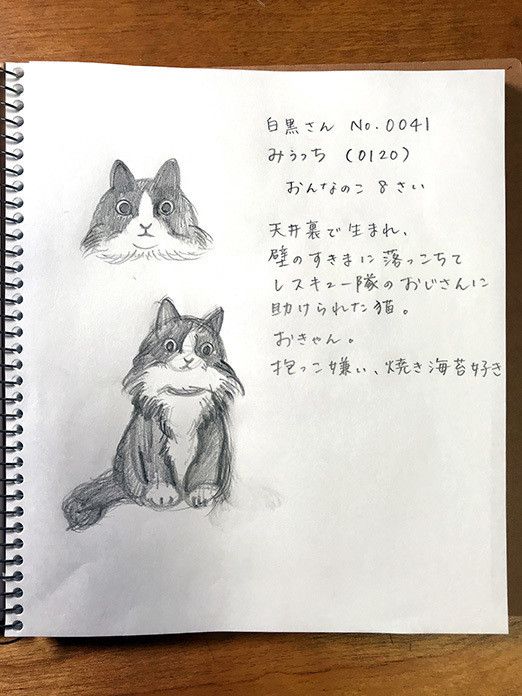 白黒さん No.0041
みうっち (0120)
おんなのこ 8さい
天井裏で生まれ、
壁のすきまに落っこちて
レスキュー隊のおじさんに
助けられた猫。
おきゃん。
抱っこ嫌い、焼き海苔好き